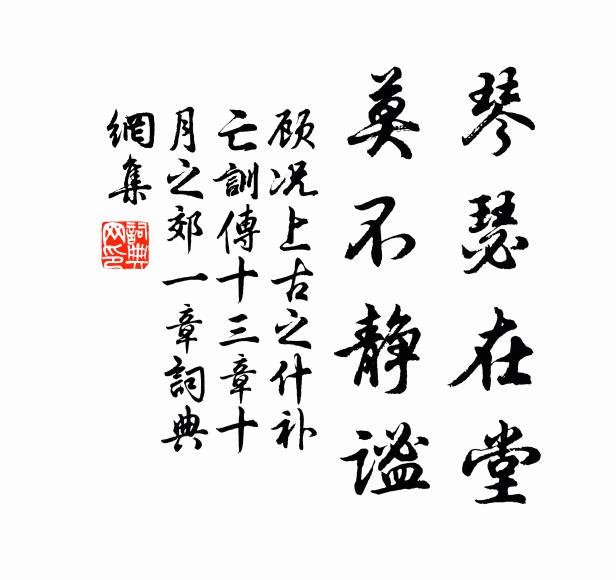 琴瑟在堂
莫不静谧
顾况上古之什补
亡訓傳十三章十
月之郊一章詞典
網集
詞典網印